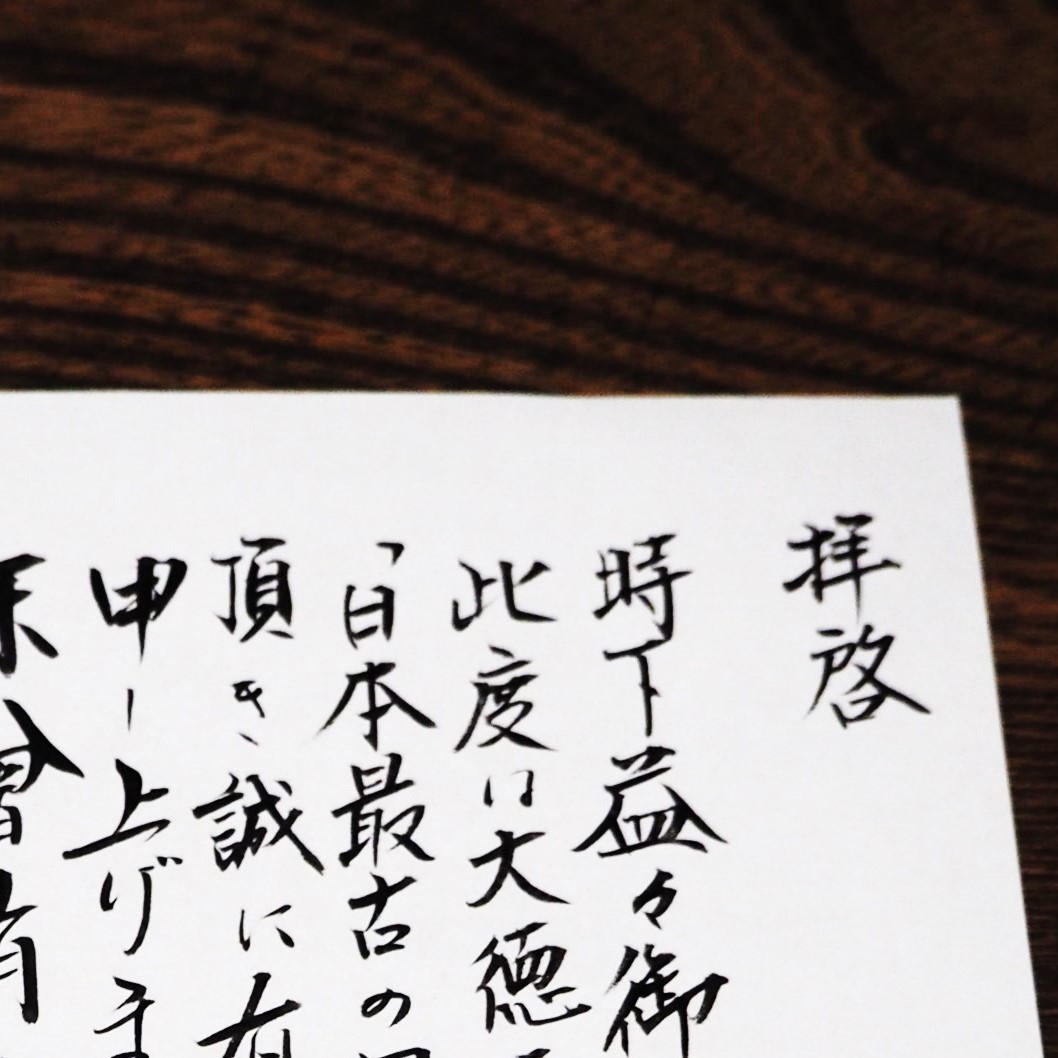 拝啓
時下益々御
此度は大德
「日本最古の
頂き、誠に有
申し上げま